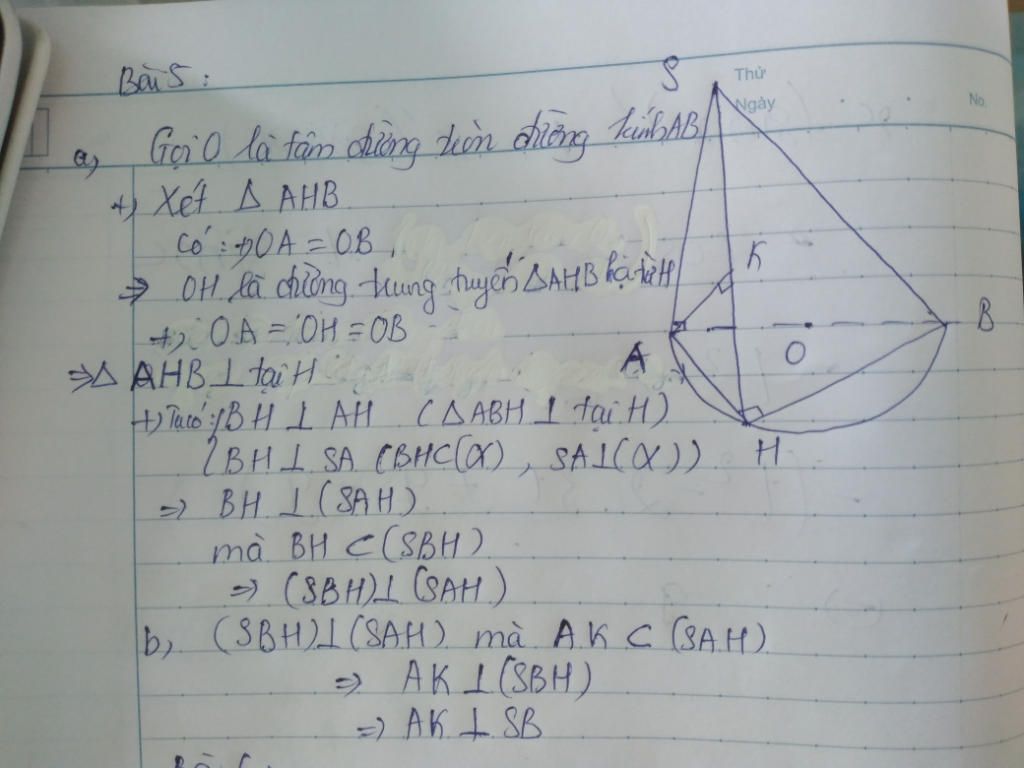 Bài 5 :
Thứ
Ngày
No.
a, Gọi O là tâm đường tròn đường kính AB
+) Xét Δ AHB
Có : +) OA = OB
⇒ OH là đường trung tuyến ΔAHB hạ từ H
+) OA = OH = OB
⇒ Δ AHB ⊥ tại H
+) Ta có : { BH ⊥ AH ( Δ ABH ⊥ tại H )
{ BH ⊥ SA ( BH ⊂ (α) , SA ⊥ (α) )
⇒ BH ⊥ (SAH)
mà BH ⊂ (SBH)
⇒ (SBH) ⊥ (SAH)
b, (SBH) ⊥ (SAH) mà AK ⊂ (SAH)
⇒ AK ⊥ (SBH)
⇒ AK ⊥ SB
S
K
A
O
B
H